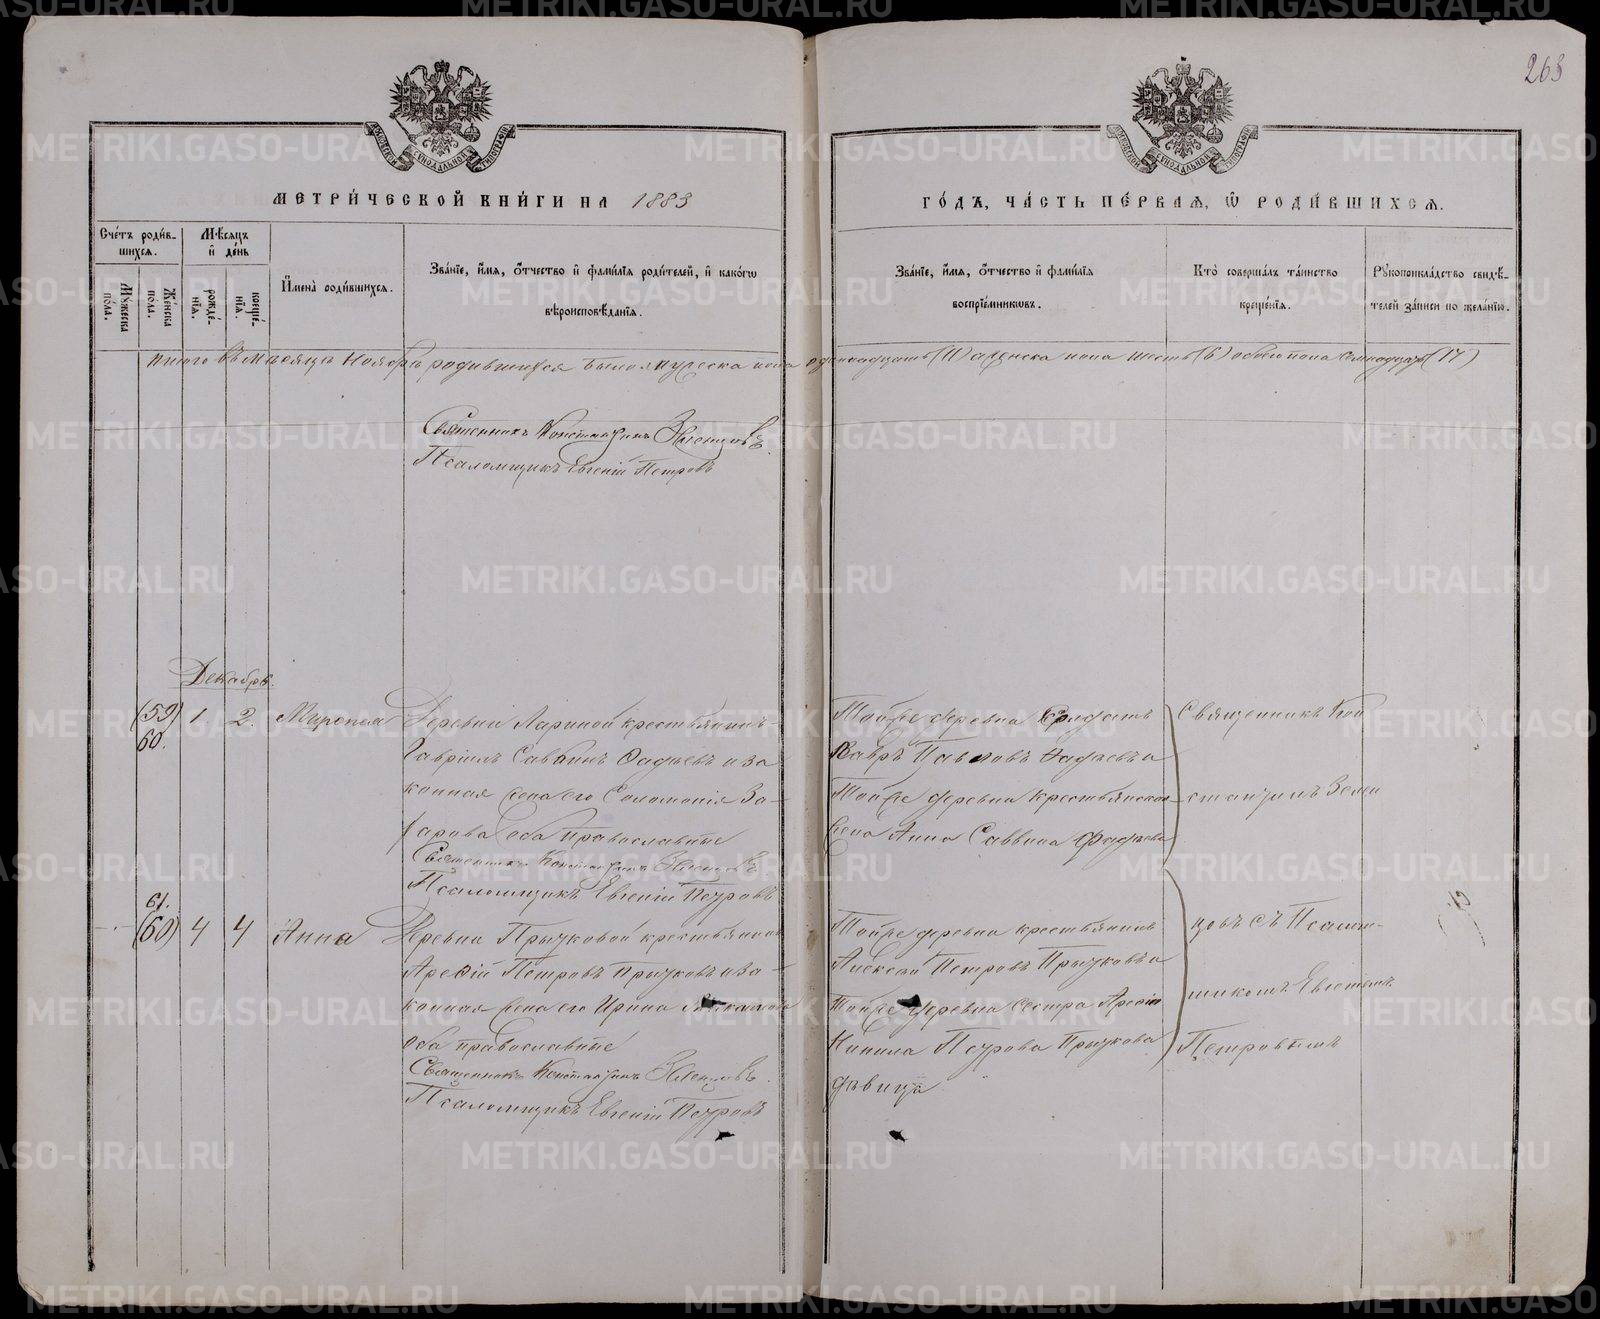 263
МЕТРИ́ЧЕСКОЙ КНИ́ГИ НА 1883
ГО́ДЪ, ЧА́СТЬ ПЕ́РВАЯ, Ѿ РОДИ́ВШИХСЯ.
Сче́тъ роди́в-
шихся.
Мѣ́сяцъ
и҆ де́нь
Му́жеска
по́ла.
Же́нска
по́ла.
рожде́-
нїя.
креще́-
нїя.
И҆мена̀ роди́вшихся.
Зва́нїе, и҆́мя, ѻ҆́тчество и҆ фами́лїя роди́телей, и҆ како́гѡ
вѣроисповѣ́данїя.
Зва́нїе, и҆́мя, ѻ҆́тчество и҆ фами́лїя
воспрїе́мникѡвъ.
Кто̀ соверша́лъ та́инство
креще́нїя.
Рꙋкоприкла́дство свидѣ́-
телей за́писи по жела́нїю.
Итого въ мѣсяцѣ Ноябрѣ родившихся было мужеска пола одиннадцать (11) а женска пола шесть (6) обоего пола семнадцать (17)
Священникъ Константинъ
Псаломщикъ Евгеній Петровъ
Декабрь.
(59) 1 2.
60.
Деревни Лариной крестьянинъ
Гавріилъ Саввинъ Фадѣевъ и за-
конная жена его Соломонія За-
харова оба православные
Священникъ Константинъ
Псаломщикъ Евгеній Петровъ
Той же деревни
Лавръ Павловъ Фадѣевъ и
Той же деревни крестьянская
жена Анна Саввина Фадѣева
Священникъ Кон
стантинъ
61.
(60) 4 4 Анна
Деревни Прыжковой крестьянинъ
Арефій Петровъ Прыжковъ и за-
конная жена его Ирина
оба православные
Священникъ Константинъ
Псаломщикъ Евгеній Петровъ
Той же деревни крестьянинъ
Алексѣй Петровъ Прыжковъ и
Той же деревни сестра Арефія
Петрова Прыжкова
дѣвица
цовъ съ Псалом-
щикомъ Евгеніемъ
Петровымъ
METRIKI.GASO-URAL.RU